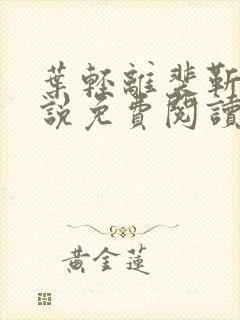 葉輕離裴靳
說免費閱讀
黃金蓮